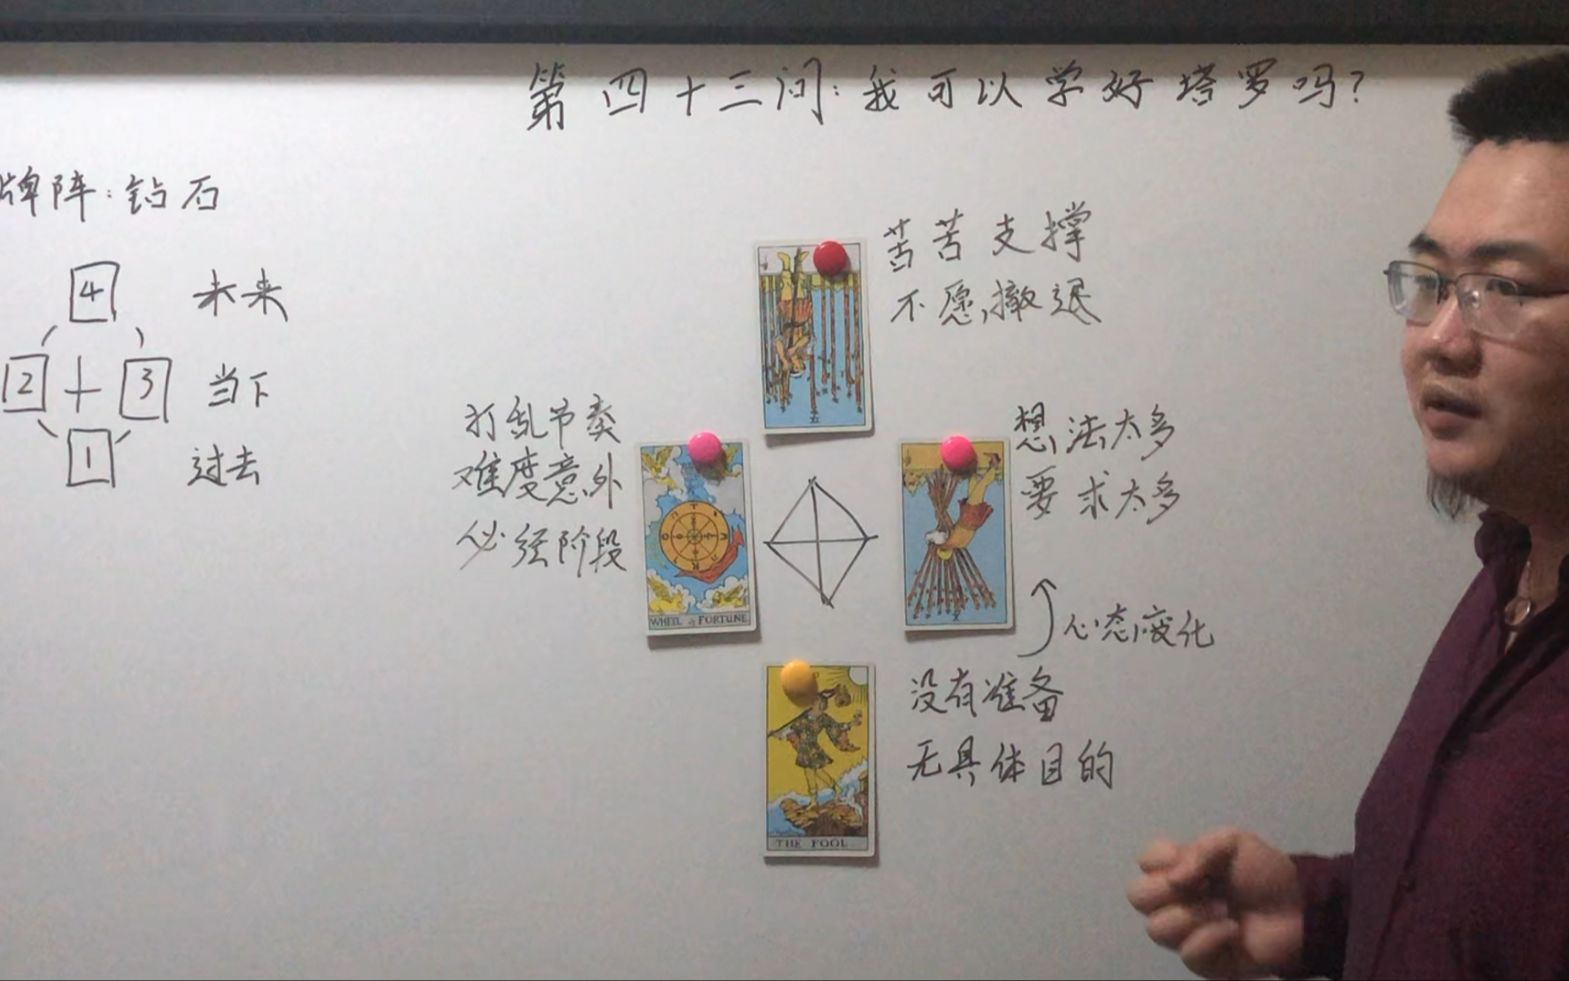 第四十三问:我可以学好塔罗吗?
牌阵:钻石
4 未来
2 3 当下
1 过去
苦苦支撑
不愿撤退
打乱节奏
难度意外
必经阶段
WHEEL of FORTUNE
想法太多
要求太多
X
心态变化
没有准备
无具体目的
THE FOOL